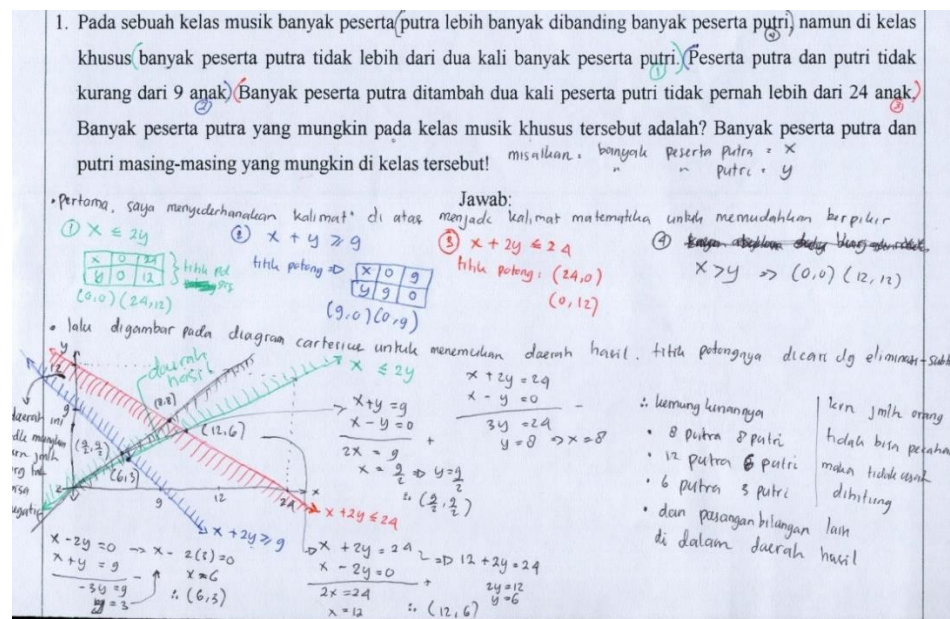 1. Pada sebuah kelas musik banyak peserta (putra lebih banyak dibanding banyak peserta putri,) namun di kelas
④
khusus (banyak peserta putra tidak lebih dari dua kali banyak peserta putri.) (Peserta putra dan putri tidak
①
kurang dari 9 anak) (Banyak peserta putra ditambah dua kali peserta putri tidak pernah lebih dari 24 anak.)
② ③
Banyak peserta putra yang mungkin pada kelas musik khusus tersebut adalah? Banyak peserta putra dan
putri masing-masing yang mungkin di kelas tersebut! misalkan : banyak peserta putra = x
" " putri = y
Jawab:
• Pertama, saya menyederhanakan kalimat² di atas menjadi kalimat matematika untuk memudahkan berpikir
① x ≤ 2y
x 0 24
y 0 12
titik pot
(0,0) (24,12)
② x + y ≥ 9
titik potong ⇒
x 0 9
y 9 0
(9,0) (0,9)
③ x + 2y ≤ 24
titik potong : (24,0)
(0,12)
④
x > y ⇒ (0,0) (12,12)
• lalu digambar pada diagram cartesius untuk menemukan daerah hasil. titik potongnya dicari dg eliminasi-subt
y
12
9
daerah hasil
(8,8)
x ≤ 2y
(12,6)
(9/2, 9/2)
(6,3)
daerah ini
tdk mungkin
krn jmlh
org tdk
bisa
negatif
9 12 24 x
x + 2y ≤ 24
x + 2y ≥ 9
x + y = 9
x - y = 0
+
2x = 9
x = 9/2 ⇒ y = 9/2
∴ (9/2, 9/2)
x + 2y = 24
x - y = 0
-
3y = 24
y = 8 ⇒ x = 8
∴ kemungkinannya
• 8 putra 8 putri
• 12 putra 6 putri
• 6 putra 3 putri
• dan pasangan bilangan lain
di dalam daerah hasil
krn jmlh orang
tidak bisa pecahan
maka tidak
dihitung
x - 2y = 0 → x - 2(3) = 0
x + y = 9
-
-3y = 9
y = 3
x = 6
∴ (6,3)
x + 2y = 24 ⇒ 12 + 2y = 24
x - 2y = 0
+
2x = 24
x = 12
2y = 12
y = 6
∴ (12,6)